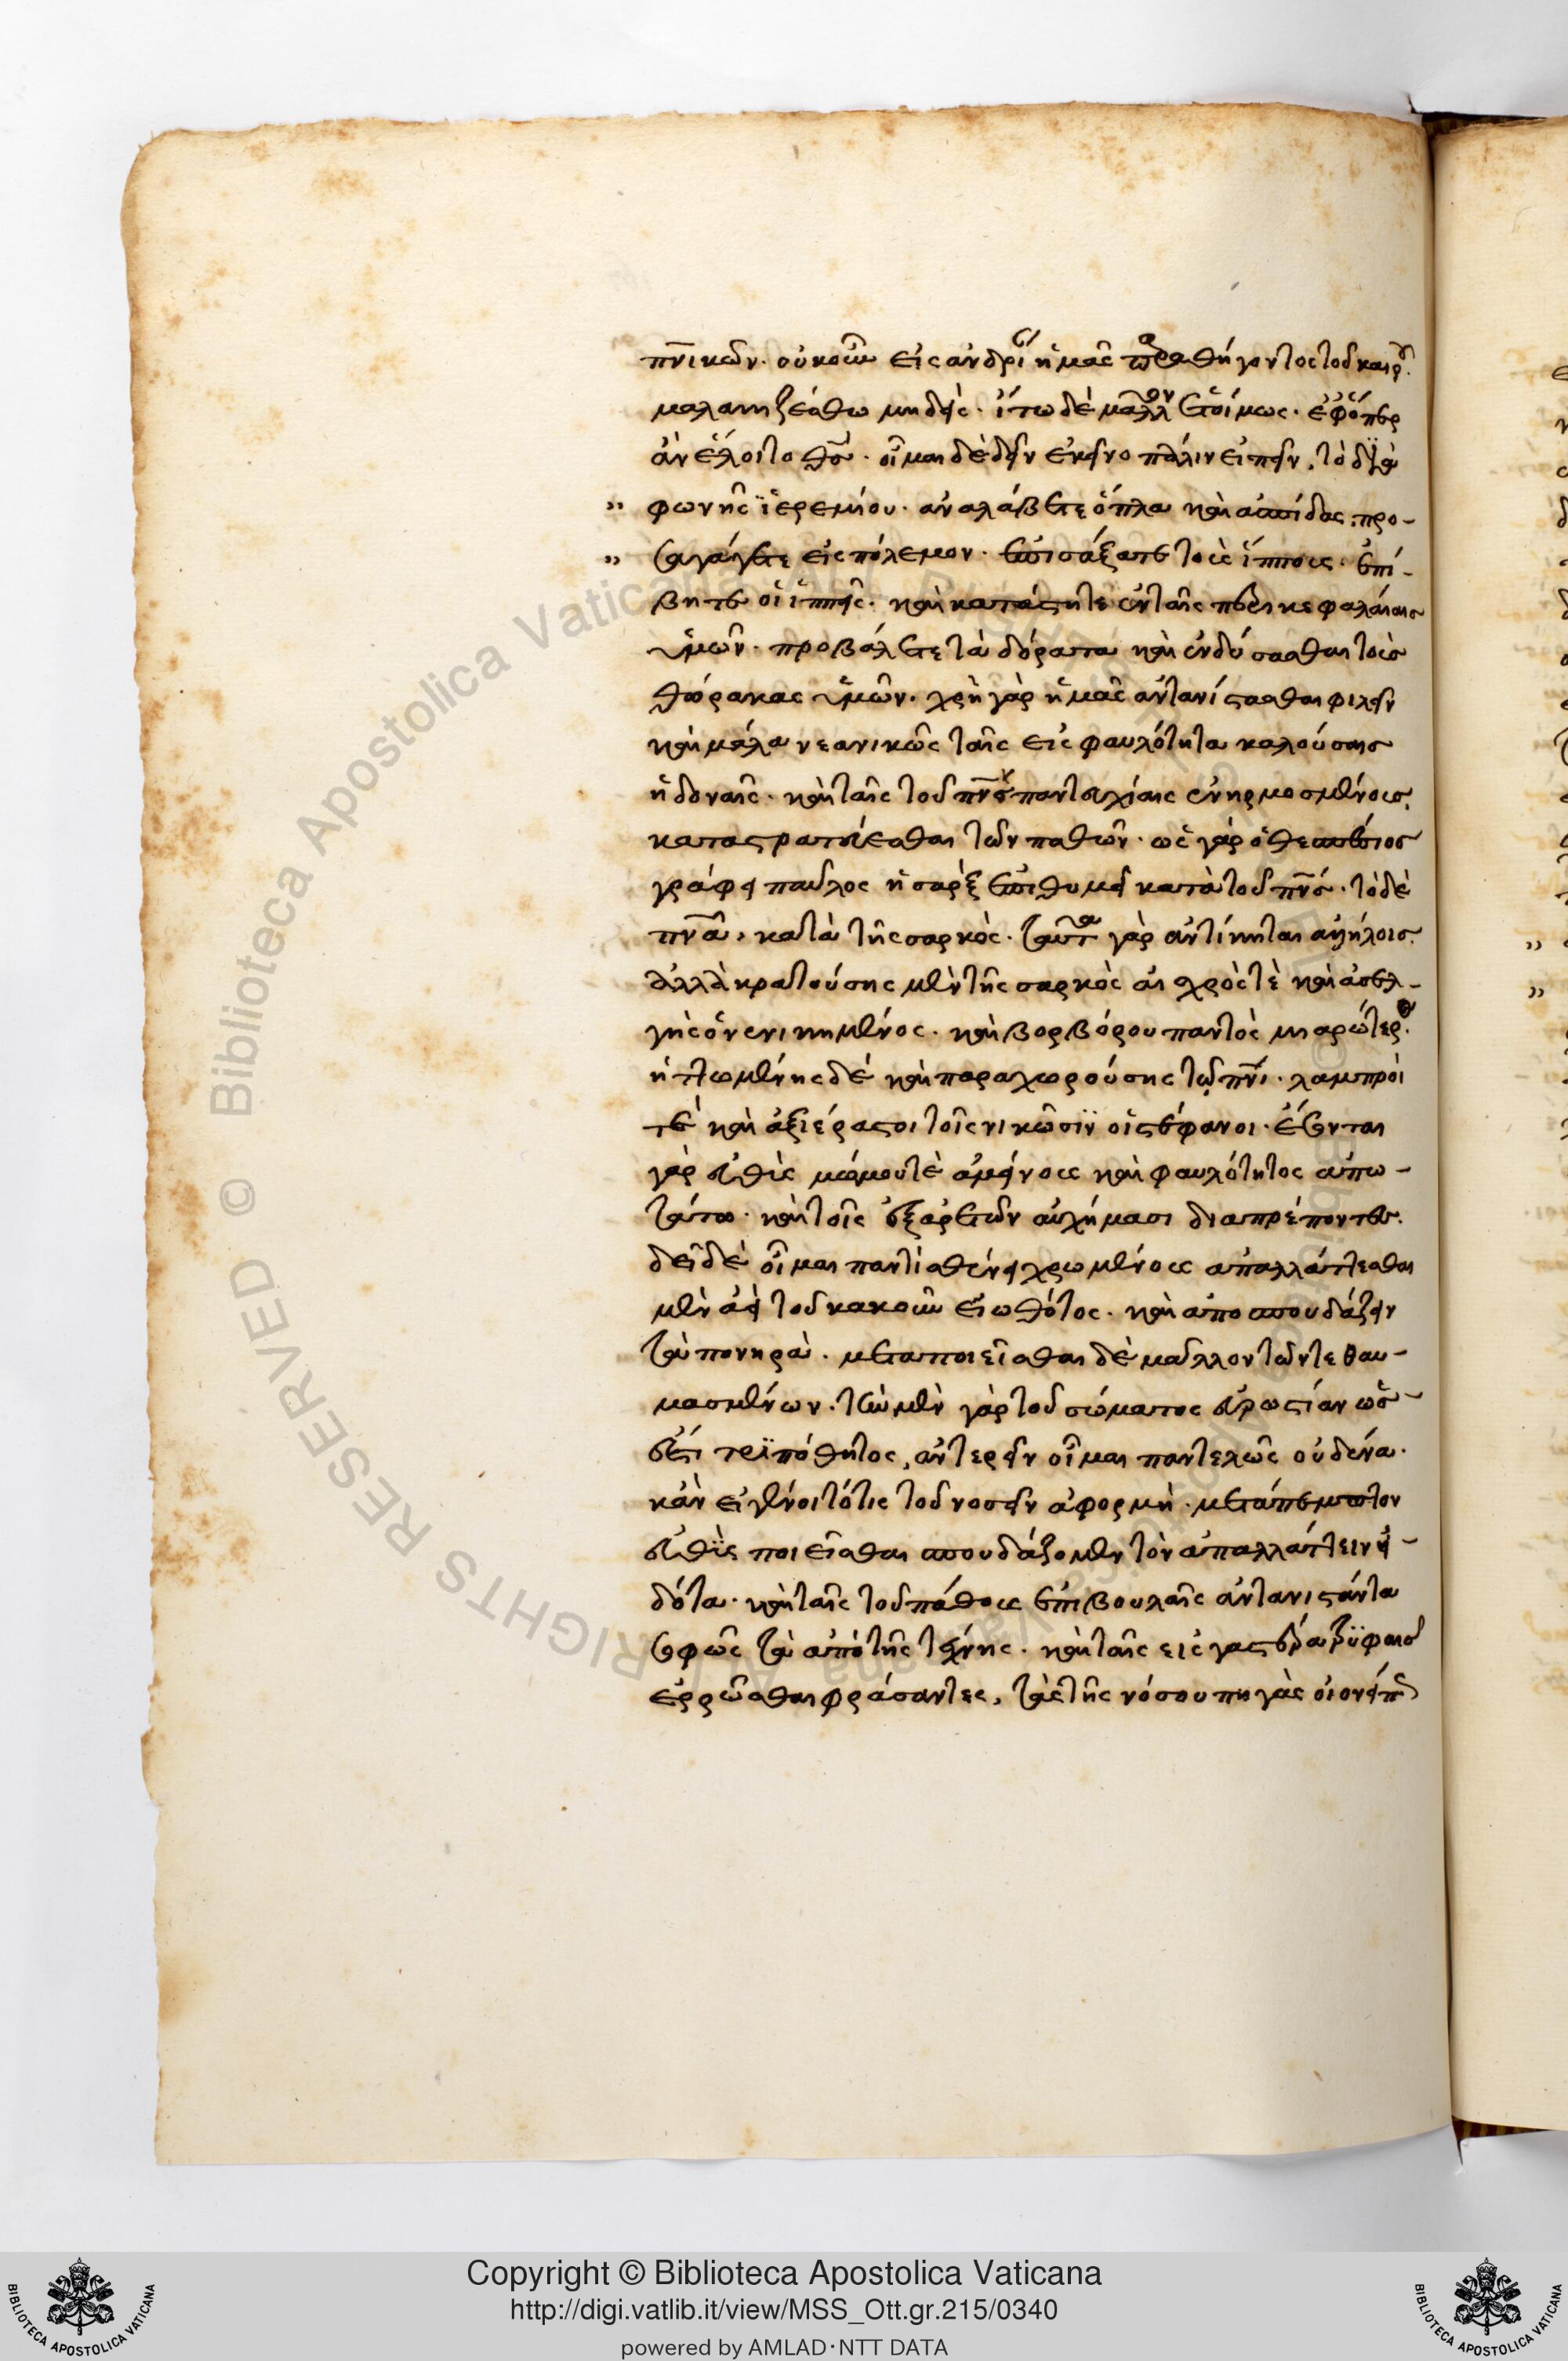 πν̅ικῶν. οὐκοῦν εἰς ἀνδρί ἡμᾶς παραθήγοντος τοῦ καιροῦ.
μαλακιζέσθω μηδεὶς. ἴτω δὲ μᾶλλον ἑτοίμως. ἐφ' ὅπερ
ἂν ἕλοιτο θς̅. οἶμαι δὲ δεῖν ἐκεῖνο πάλιν εἰπεῖν, τὸ διὰ
" φωνῆς ἱερεμίου. ἀναλάβετε ὅπλα καὶ ἀσπίδας. προ-
" σαγάγετε εἰς πόλεμον. ἐπισάξατε τοὺς ἵππους. ἐπί-
βητε οἱ ἱππεῖς. καὶ κατάστητε ἐν ταῖς περικεφαλαίαις
ὑμῶν. προβάλετε τὰ δόρατα καὶ ἐνδύσασθαι τοὺς
θώρακας ὑμῶν. χρὴ γὰρ ἡμᾶς ἀντανίστασθαι φιλεῖν
καὶ μάλα νεανικῶς ταῖς εἰς φαυλότητα καλούσαις
ἡδοναῖς. καὶ ταῖς τοῦ πν̅ς παντευχίαις ἐνηρμοσμένους.
καταστρατεύεσθαι τῶν παθῶν. ὡς γὰρ ὁ θεσπέσιος
γράφει παῦλος ἡ σαρξ ἐπιθυμεῖ κατὰ τοῦ πν̅ς. τὸ δὲ
πν̅α, κατὰ τῆς σαρκὸς. ταῦτα γὰρ ἀντίκειται ἀλλήλοις.
ἀλλὰ κρατούσης μὲν τῆς σαρκὸς αἰσχρὸς τὲ καὶ ἀσελ-
γὴς ὁ νενικημένος. καὶ βορβόρου παντὸς μιαρώτερος.
ἡττωμένης δέ καὶ παραχωρούσης τῷ πν̅ι. λαμπροὶ
τέ καὶ ἀξιέραστοι τοῖς νικῶσιν οἱ στέφανοι. ἔσονται
γὰρ εὐθὺς μώμου τὲ ἀμείνους καὶ φαυλότητος ἀπω-
τάτω. καὶ τοῖς ἐξ ἀρετῶν αὐχήμασι διαπρέποντες.
δεῖ δὲ οἶμαι παντὶ σθένει χρωμένους ἀπαλλάττεσθαι
μὲν ἀεὶ τοῦ κακοῦν εἰωθότος. καὶ ἀποσπουδάζειν
τὰ πονηρὰ. μεταποιεῖσθαι δὲ μᾶλλον τῶν τεθαυ-
μασμένων. τὴν μὲν γὰρ τοῦ σώματος εὐρωστίαν ὡς
ἔστι τριπόθητος, ἀντερεῖν οἶμαι παντελῶς οὐδένα.
κἂν εἰ γένοιτό τις τοῦ νοσεῖν ἀφορμὴ. μετάπεμπτον
εὐθὺς ποιεῖσθαι σπουδάζομεν τὸν ἀπαλλάττειν εἰ-
δότα. καὶ ταῖς τοῦ πάθους ἐπιβουλαῖς ἀντανιστάντα
σοφῶς τὰ ἀπὸ τῆς τέχνης. καὶ ταῖς εἰς γαστέρα τρυφαῖς
ἐρρῶσθαι φράσαντες, τὰς τῆς νόσου πηγὰς οἱονεί π